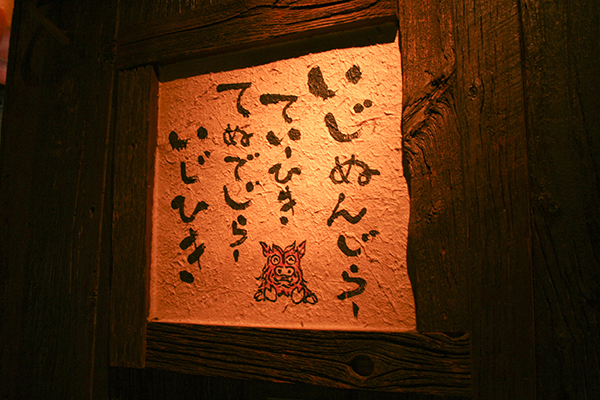 いじぬんじらー
てぃひき・
てぬでじらー
いじひき・